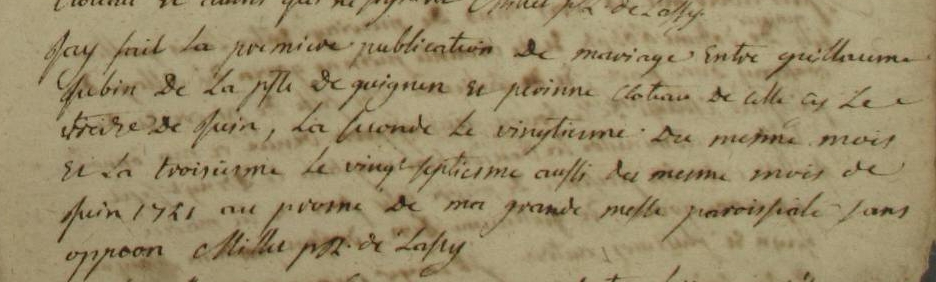 et autres qui ne signent Millet ptre de Lassy
Jay fait La premiere publication De mariage Entre guillaume
Jubin De La psse De guignen Et perinne Cloleau De celle cy Le
treize De Juin, La seconde Le vingtiesme Du mesme mois
Et La troisiesme Le vingt septiesme aussi du mesme mois de
Juin 1721 au prosne De ma grande messe paroissiale sans
oppoon Millet ptre de Lassy